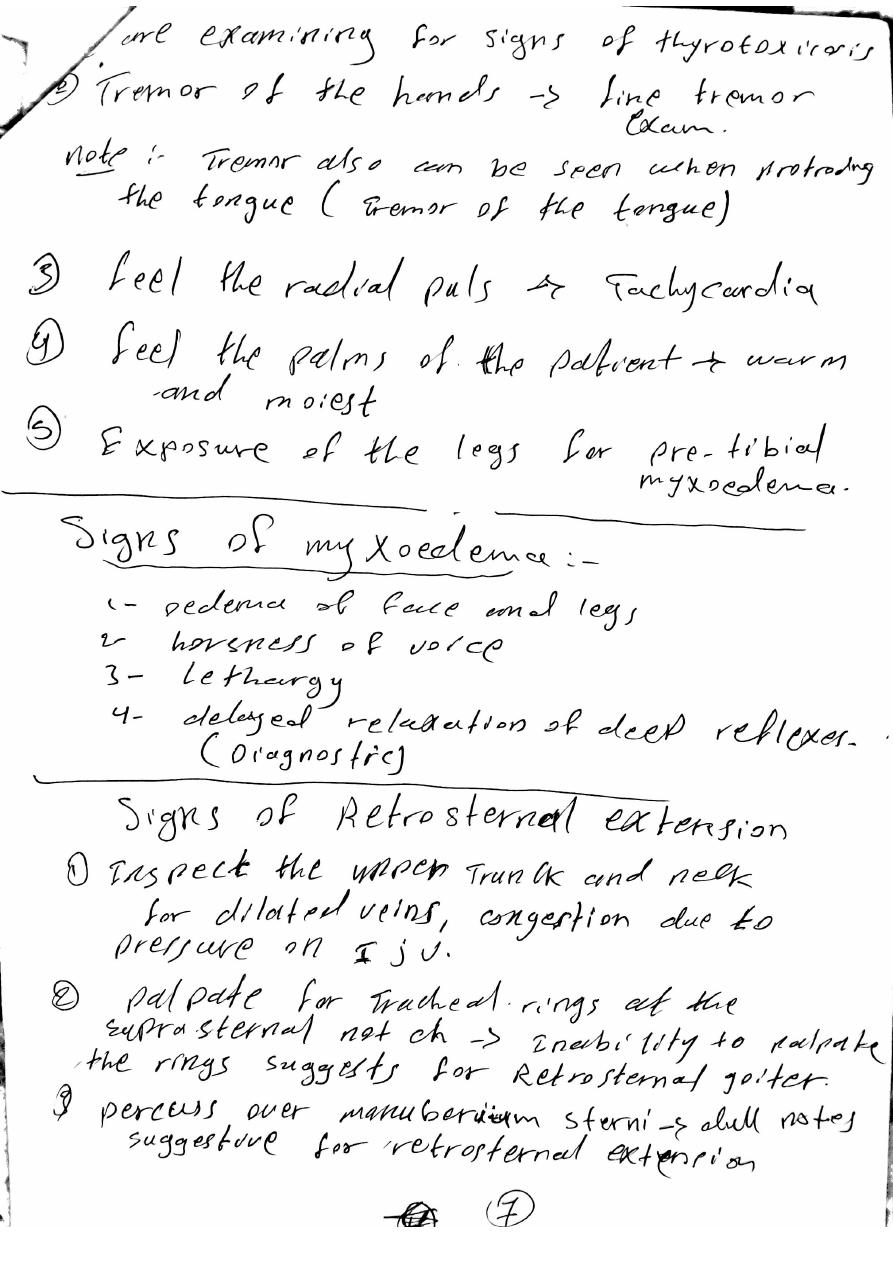 are examining for signs of thyrotoxicosis
② Tremor of the hands -> fine tremor
exam.
note :- Tremor also can be seen when protroding
the tongue ( Tremor of the tongue)
③ feel the radial puls -> Tachycardia
④ feel the palms of the patient -> warm
and moiest
⑤ Exposure of the legs for pre-tibial
myxoedema.
Signs of myxoedema :-
1- oedema of face and legs
2- horsness of voice
3- Lethargy
4- delayed relaxation of deep reflexes.
(Diagnostic)
Signs of Retrosternal extension
① Inspect the upper Trunck and neck
for dilated veins, congestion due to
pressure on IjV.
② palpate for Tracheal rings at the
suprasternal notch -> Inability to palpate
the rings suggests for Retrosternal goiter.
③ percuss over manuberium sterni -> dull notes
suggestive for retrosternal extension
⑦